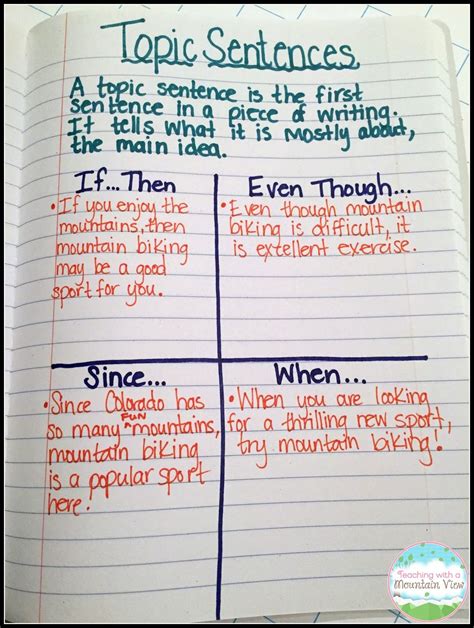 Topic Sentences
A topic sentence is the first
sentence in a piece of writing.
It tells what it is mostly about,
the main idea.
If...Then
• If you enjoy the
mountains, then
mountain biking
may be a good
sport for you.
Even Though...
• Even though mountain
biking is difficult, it
is excellent exercise.
Since...
• Since Colorado has
so many FUN mountains,
mountain biking
is a popular sport
here.
When...
• When you are looking
for a thrilling new sport,
try mountain biking!
Teaching with a
Mountain View